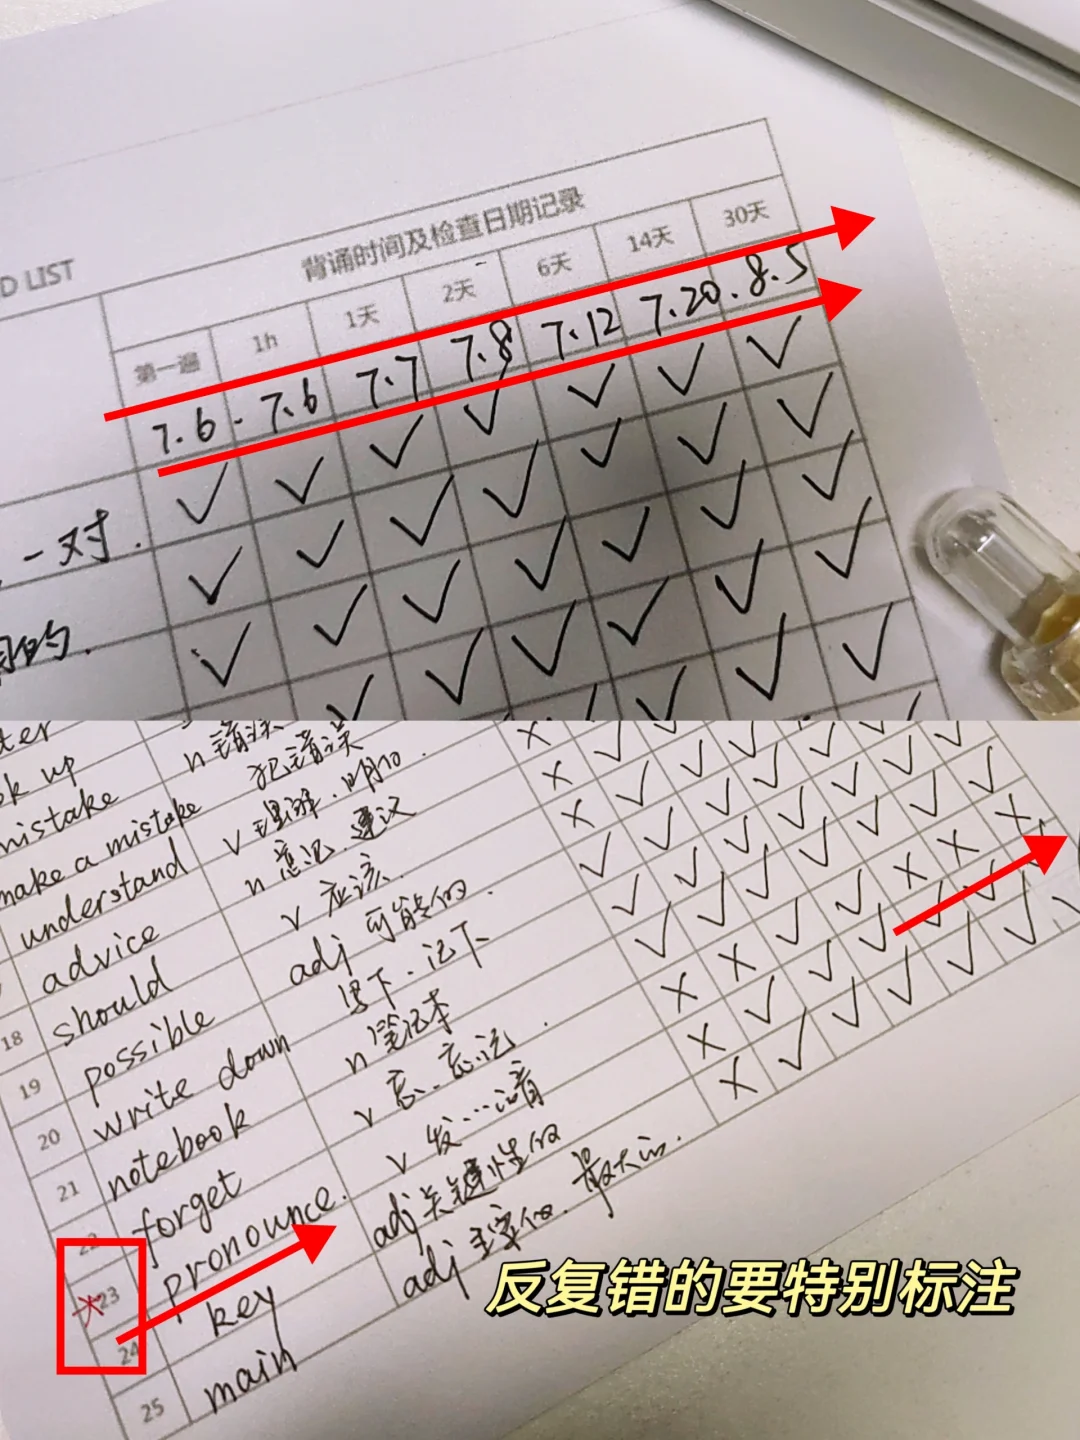 D LIST
背诵时间及检查日期记录
第一遍 1h 1天 2天 6天 14天 30天
7.6. 7.6 7.7 7.8 7.12 7.20. 8.5
一对.
的.
ter
ok up n 错误
mistake 犯错误
make a mistake v 理解.明白.
understand n 意见.建议
advice v 应该.
18 should adj 可能的.
19 possible 写下.记下
20 write down n 笔记本
21 notebook v 忘.忘记.
22 forget v 发…音
23 pronounce. adj 关键性的
24 key adj 主宰的.最大的.
25 main
反复错的要特别标注